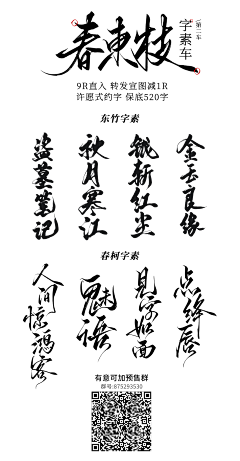 春東枝
字素车
第二车
9R直入 转发宣图减1R
许愿式约字 保底520字
东竹字素
金玉良缘
钺斩红尘
秋月寒江
盗墓笔记
春柯字素
点绛唇
见字如面
魅语
人间惊鸿客
有意可加预售群
群号:875293530